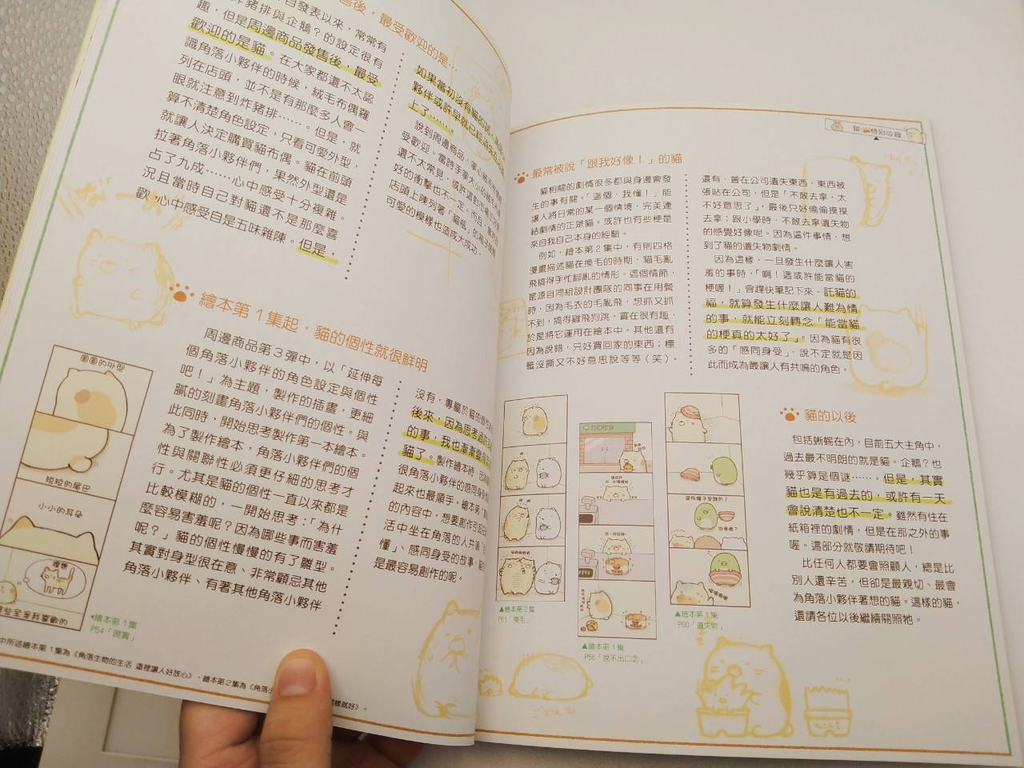 售後，最受歡迎的是…
自發表以來，常常有
炸豬排與企鵝？的設定很有
趣，但是周邊商品發售後，最受
歡迎的是貓。在大家都還不太認
識角落小夥伴的時候，絨毛布偶羅
列在店頭，並不是有那麼多人會一
眼就注意到炸豬排……。但是，就
算不清楚角色設定，只看可愛外型，
就讓人決定購買貓布偶。貓在前頭
拉著角落小夥伴們，果然外型還是
占了九成……心中感受十分複雜。
況且當時自己對貓還不是那麼喜
歡，心中感受自是五味雜陳。但是，
如果當初沒有
夥伴或許早就已經
上了……
說到周邊商品，
受歡迎，當時手掌大
還不太常見，或許
好的衝擊也不一定。而且，
店頭上陳列著「貓
可愛的模樣也造成大成功。
繪本第1集起，貓的個性就很鮮明
周邊商品第3彈中，以「延伸每
個角落小夥伴的角色設定與個性
吧！」為主題，製作的插畫，更細
膩的刻畫角落小夥伴們的個性。與
此同時，開始思考製作第一本繪本。
為了製作繪本，角落小夥伴們的個
性與關聯性必須更仔細的思考才
行。尤其是貓的個性一直以來都是
比較模糊的，一開始思考：「為什
麼容易害羞呢？因為哪些事而害羞
呢？」貓的個性慢慢的有了雛型。
其實對身型很在意、非常顧忌其他
角落小夥伴、有著其他角落小夥伴
沒有，專屬於貓的
後來，因為思考
的事，我也漸漸
貓了。製作繪本時，
很角落小夥伴的
起來也最順手。繪本
的內容中，想要創作引起
活中坐在角落的人共鳴
懂」、感同身受的故事，
是最容易創作的呢。
圓圓的體型
短短的尾巴
小小的耳朵
理想
◀繪本第1集
P54「現實」
中所述繪本第1集為《角落生物的生活 這裡讓人好放心》、繪本第2集為《角落
樣就好》。
貓 特別收錄
最常被說「跟我好像！」的貓
貓相關的劇情很多都與身邊會發
生的事有關，「這個，我懂！」能
讓人將日常的某一個情境，完美連
結劇情的正是貓，或許也有些梗是
來自我自己本身的經驗。
例如，繪本第2集中，有則四格
漫畫描述貓在換毛的時期，貓毛亂
飛搞得手忙腳亂的情形。這個情節，
是源自同組設計團隊的同事在用餐
時，因為毛衣的毛亂飛，想抓又抓
不到，搞得雞飛狗跳，實在很有趣，
於是將它運用在繪本中。其他還有
因為說謊，只好買回家的東西；標
籤沒撕又不好意思說等等（笑）。
還有，曾在公司遺失東西，東西被
張貼在公司，但是「不敢去拿，太
不好意思了」，最後只好偷偷摸摸
去拿；跟小學時，不敢去拿遺失物
的感覺好像呢。因為這件事情，想
到了貓的遺失物劇情。
因為這樣，一旦發生什麼讓人害
羞的事時，「啊！這或許能當貓的
梗喔！」會趕快筆記下來。託貓的
福，就算發生什麼讓人難為情
的事，就能立刻轉念「能當貓
的梗真的太好了」。因為貓有很
多的「感同身受」，說不定就是因
此而成為最讓人有共鳴的角色。
▲繪本第2集
P61「換毛」
▲繪本第1集
P56「說不出口之」
▲繪本第1集
P60「遺失物」
貓的以後
包括蜥蜴在內，目前五大主角中，
過去最不明朗的就是貓。企鵝？也
幾乎算是個謎……但是，其實
貓也是有過去的，或許有一天
會說清楚也不一定。雖然有住在
紙箱裡的劇情，但是在那之外的事
喔。這部分就敬請期待吧！
比任何人都要會照顧人，總是比
別人還辛苦，但卻是最親切、最會
為角落小夥伴著想的貓。這樣的貓，
還請各位以後繼續關照牠。